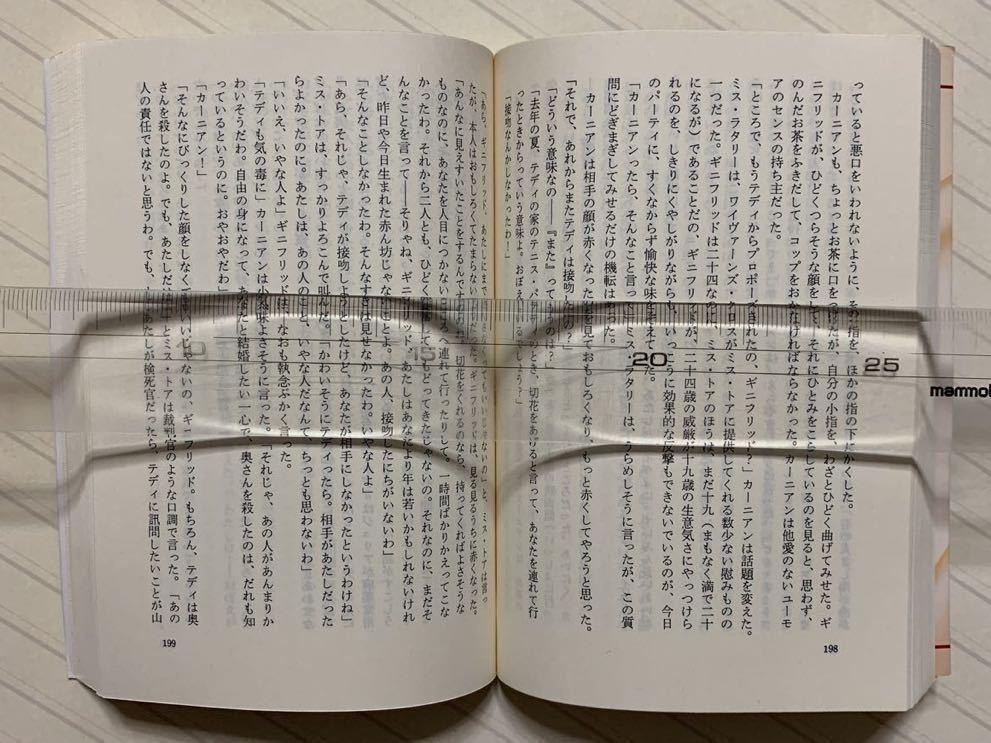 っていると悪口をいわれないように、その指を、ほかの指の下にかくした。
カーニアンも、ちょっとお茶に口をつけたが、自分の小指を、わざとひどく曲げてみせた。ギ
ニフリッドが、ひどくつらそうな顔をして、それにひとみをこらしているのを見ると、思わず、
のんだお茶をふきだして、コップをおかなければならなかった。カーニアンは他愛のないユーモ
アのセンスの持ち主だった。
「ところで、もうテディからプロポーズされたの、ギニフリッド？」カーニアンは話題を変えた。
ミス・ラタリーは、ワイヴァーンズ・クロスがミス・トアに提供してくれる数少ない慰みものの
一つだった。ギニフリッドは二十四なのに、ミス・トアのほうは、まだ十九（まもなく満で二十
になるが）である。ことだの、ギニフリッドが、二十四歳の威厳が十九歳の生意気さにやっつけら
れるのを、しきりにくやしがりながらも、いっこうに効果的な反撃もできないでいるのが、今日
のパーティに、すくなからず愉快な味を添えてた。
「カーニアンったら、そんなこと言って」ミス・ラタリーは、うらめしそうに言ったが、この質
問にどぎまぎしてみせるだけの機転はあった。
カーニアンは相手の顔が赤くなったのを見ておもしろくなり、もっと赤くしてやろうと思った。
「それで、あれからまたテディは接吻したの？」
「どういう意味なの――『また』っていうのは？」
「去年の夏、テディの家のテニス・パーティのとき、切花をあげると言って、あなたを連れて行
ったときからっていう意味よ。おぼえてるでしょう？」
「接吻なんかしなかったわ！」
「あら、ギニフリッド、あたしにまで
いいじゃないの」と、ミス・トアは言っ
たが、本人はおもしろくてたまらない
ギニフリッドは、見る見るうちに赤くなった。
「あんなに見えすいたことをするんですもの。切花をくれるのなら、持ってくればよさそうな
ものなのに、あなたを人目につかないところへ連れて行ったりして。時間ばかりかえってこな
かったわ。それから二人とも、ひどく
してもどってきたじゃないの。それなのに、まだそ
んなことを言って――そりゃね、ギニフリッド、あたしはあなたより年は若いかもしれないけれ
ど、昨日や今日生まれた赤ん坊じゃないことよ。あの人、接吻したにちがいないわ」
「そんなことしなかったわ。そんなすきは見せなかったわ。いやな人よ」
「あら、それじゃ、テディが接吻しようとしたけど、あなたが相手にしなかったというわけね」
ミス・トアは、すっかりよろこんで叫んだ。「かわいそうにテディったら。相手があたしだった
らよかったのに。あたしは、あの人のこと、いやな人だなんて、ちっとも思わないわ」
「いいえ、いやな人よ」ギニフリッドは、なおも執念ぶかく言った。
「テディも気の毒に」カーニアンは小気味よさそうに言った。「それじゃ、あの人があんまりか
わいそうだわ。自由の身になって、あなたと結婚したい一心で、奥さんを殺したのは、だれも知
っているというのに。おやおやだわ」
「カーニアン！」
「そんなにびっくりした顔をしなくてもいいじゃないの、ギニフリッド。もちろん、テディは奥
さんを殺したのよ。でも、あたしだけは」とミス・トアは裁判官のような口調で言った。「あの
人の責任ではないと思うわ。でも、もしあたしが検死官だったら、テディに訊問したいことが山
198
199
10
15
20
25
mammo